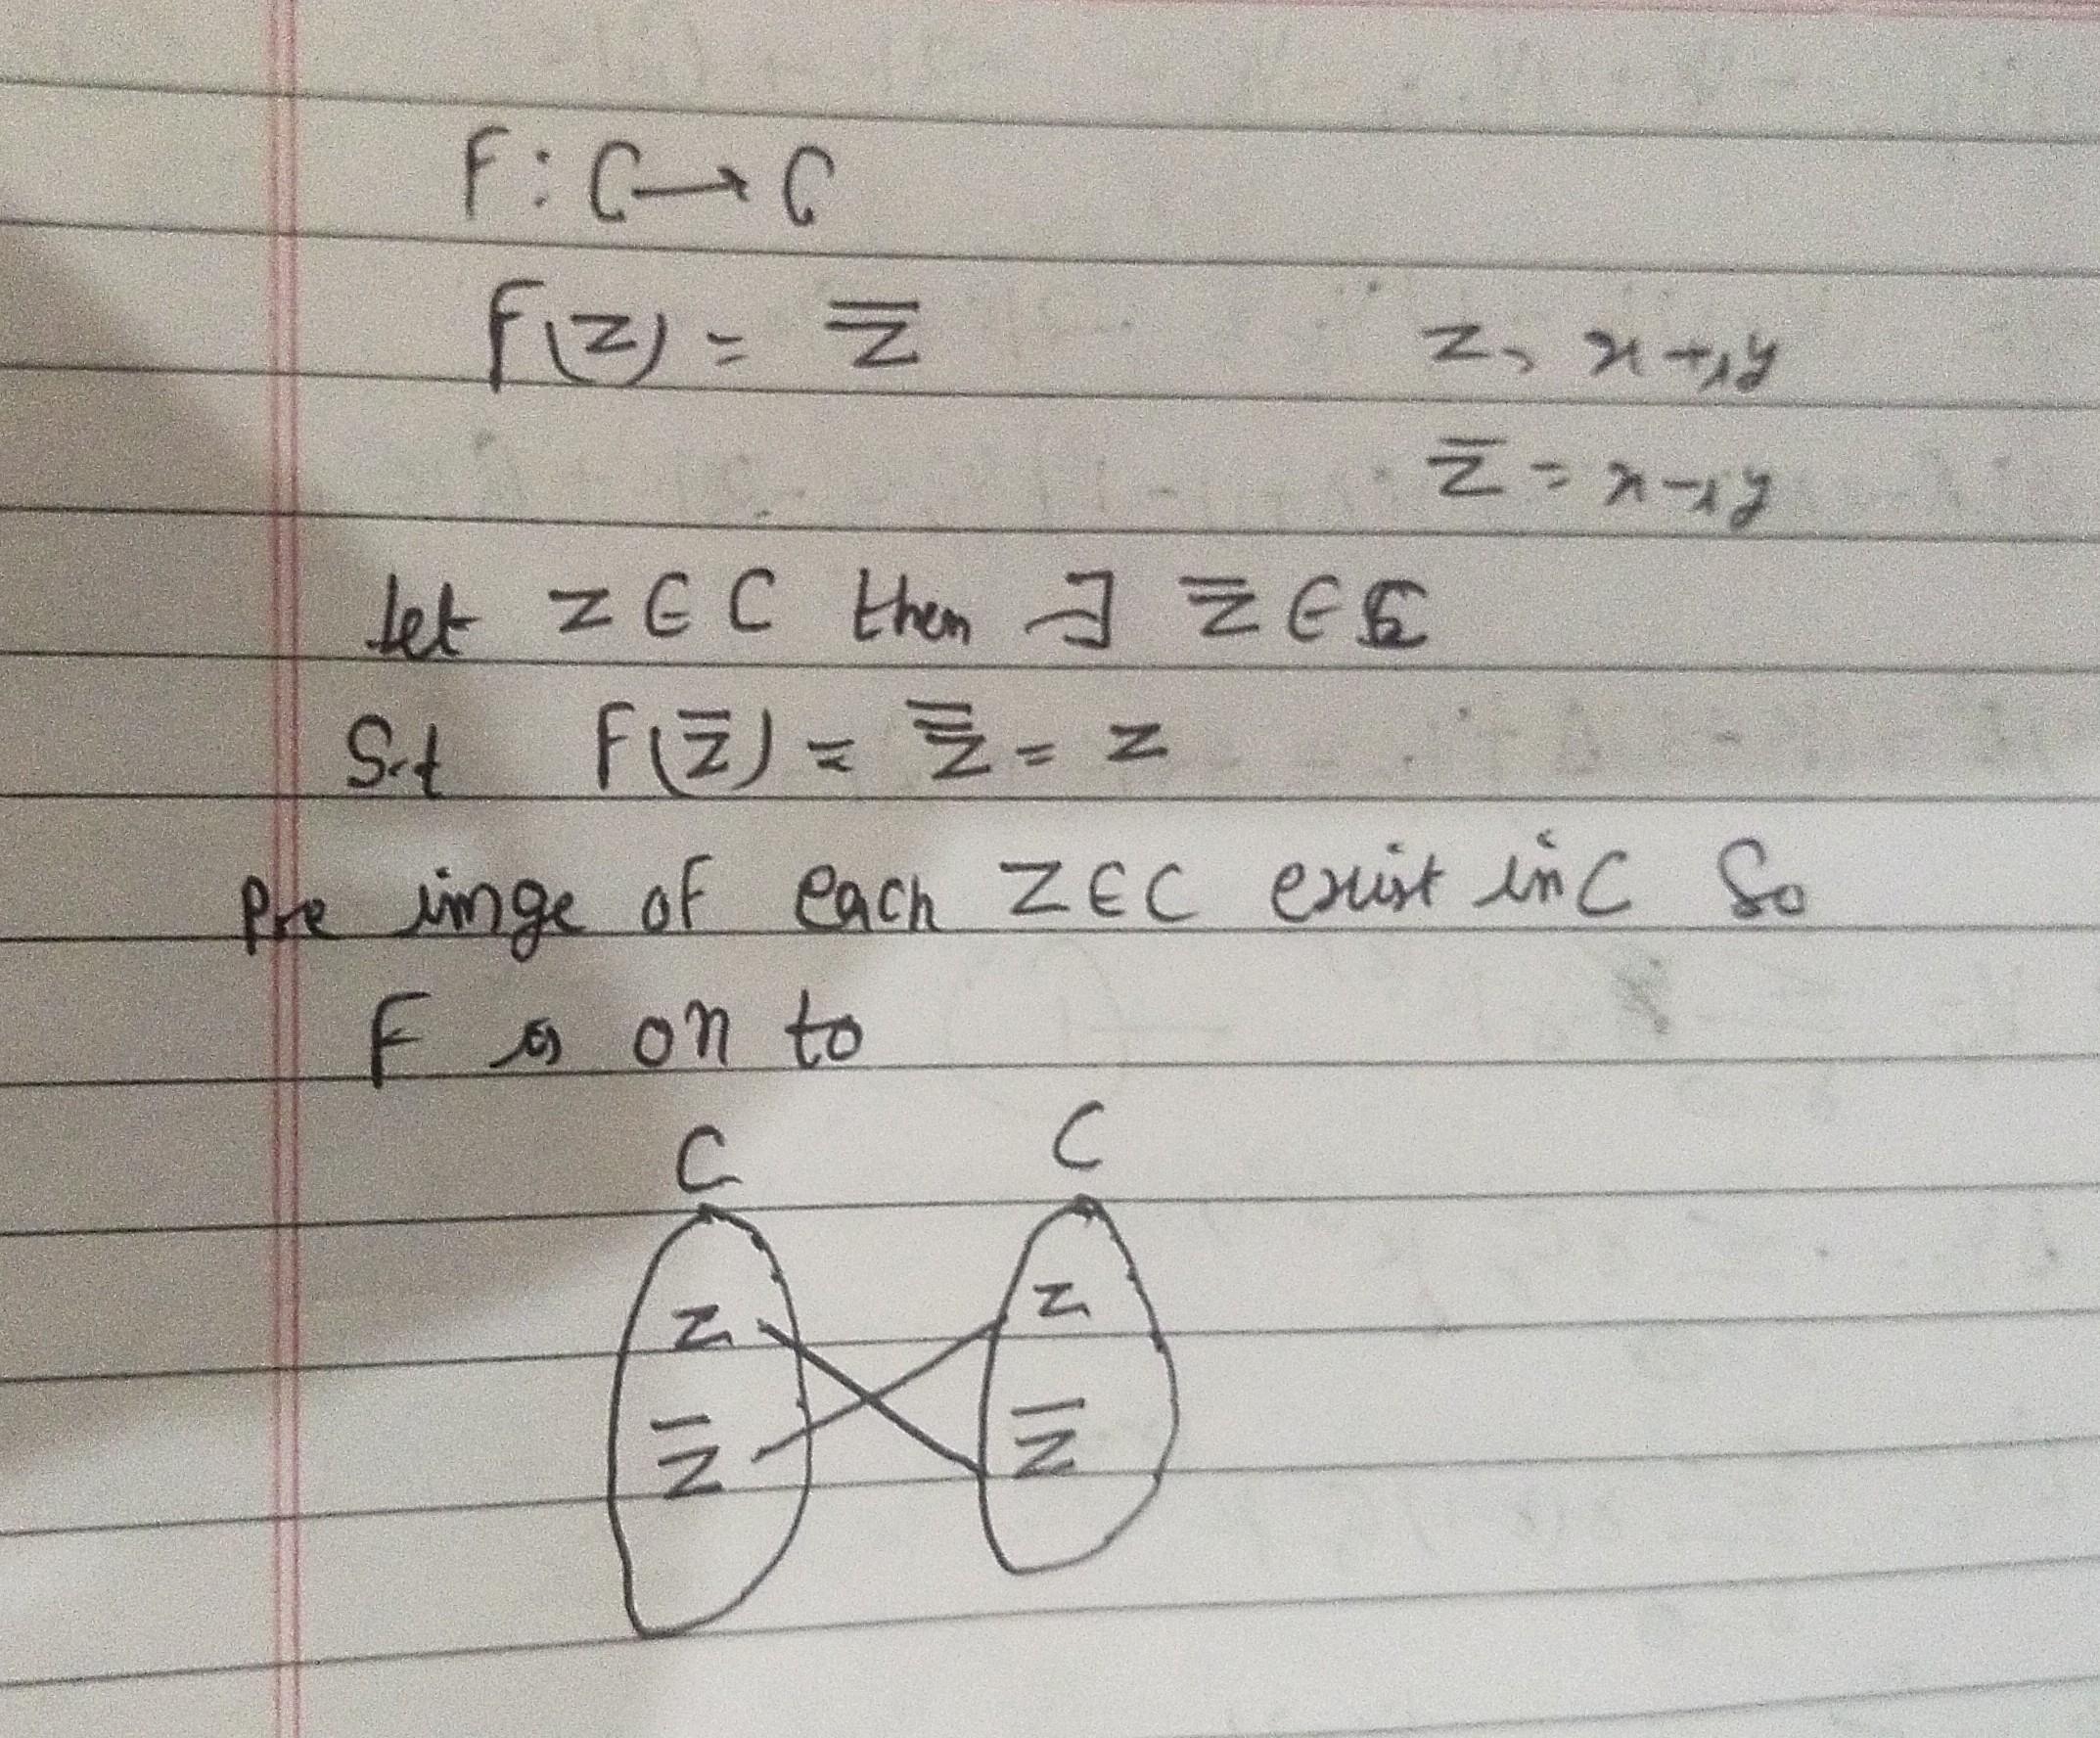 F : C → C
F(z) = z̅
z, x+iy
z̅ = x-iy
let z ∈ C then ∃ z̅ ∈ C
S.t F(z̅) = z̿ = z
Pre imge of each z ∈ C exist in C So
F is on to
C C
z z
z̅ z̅